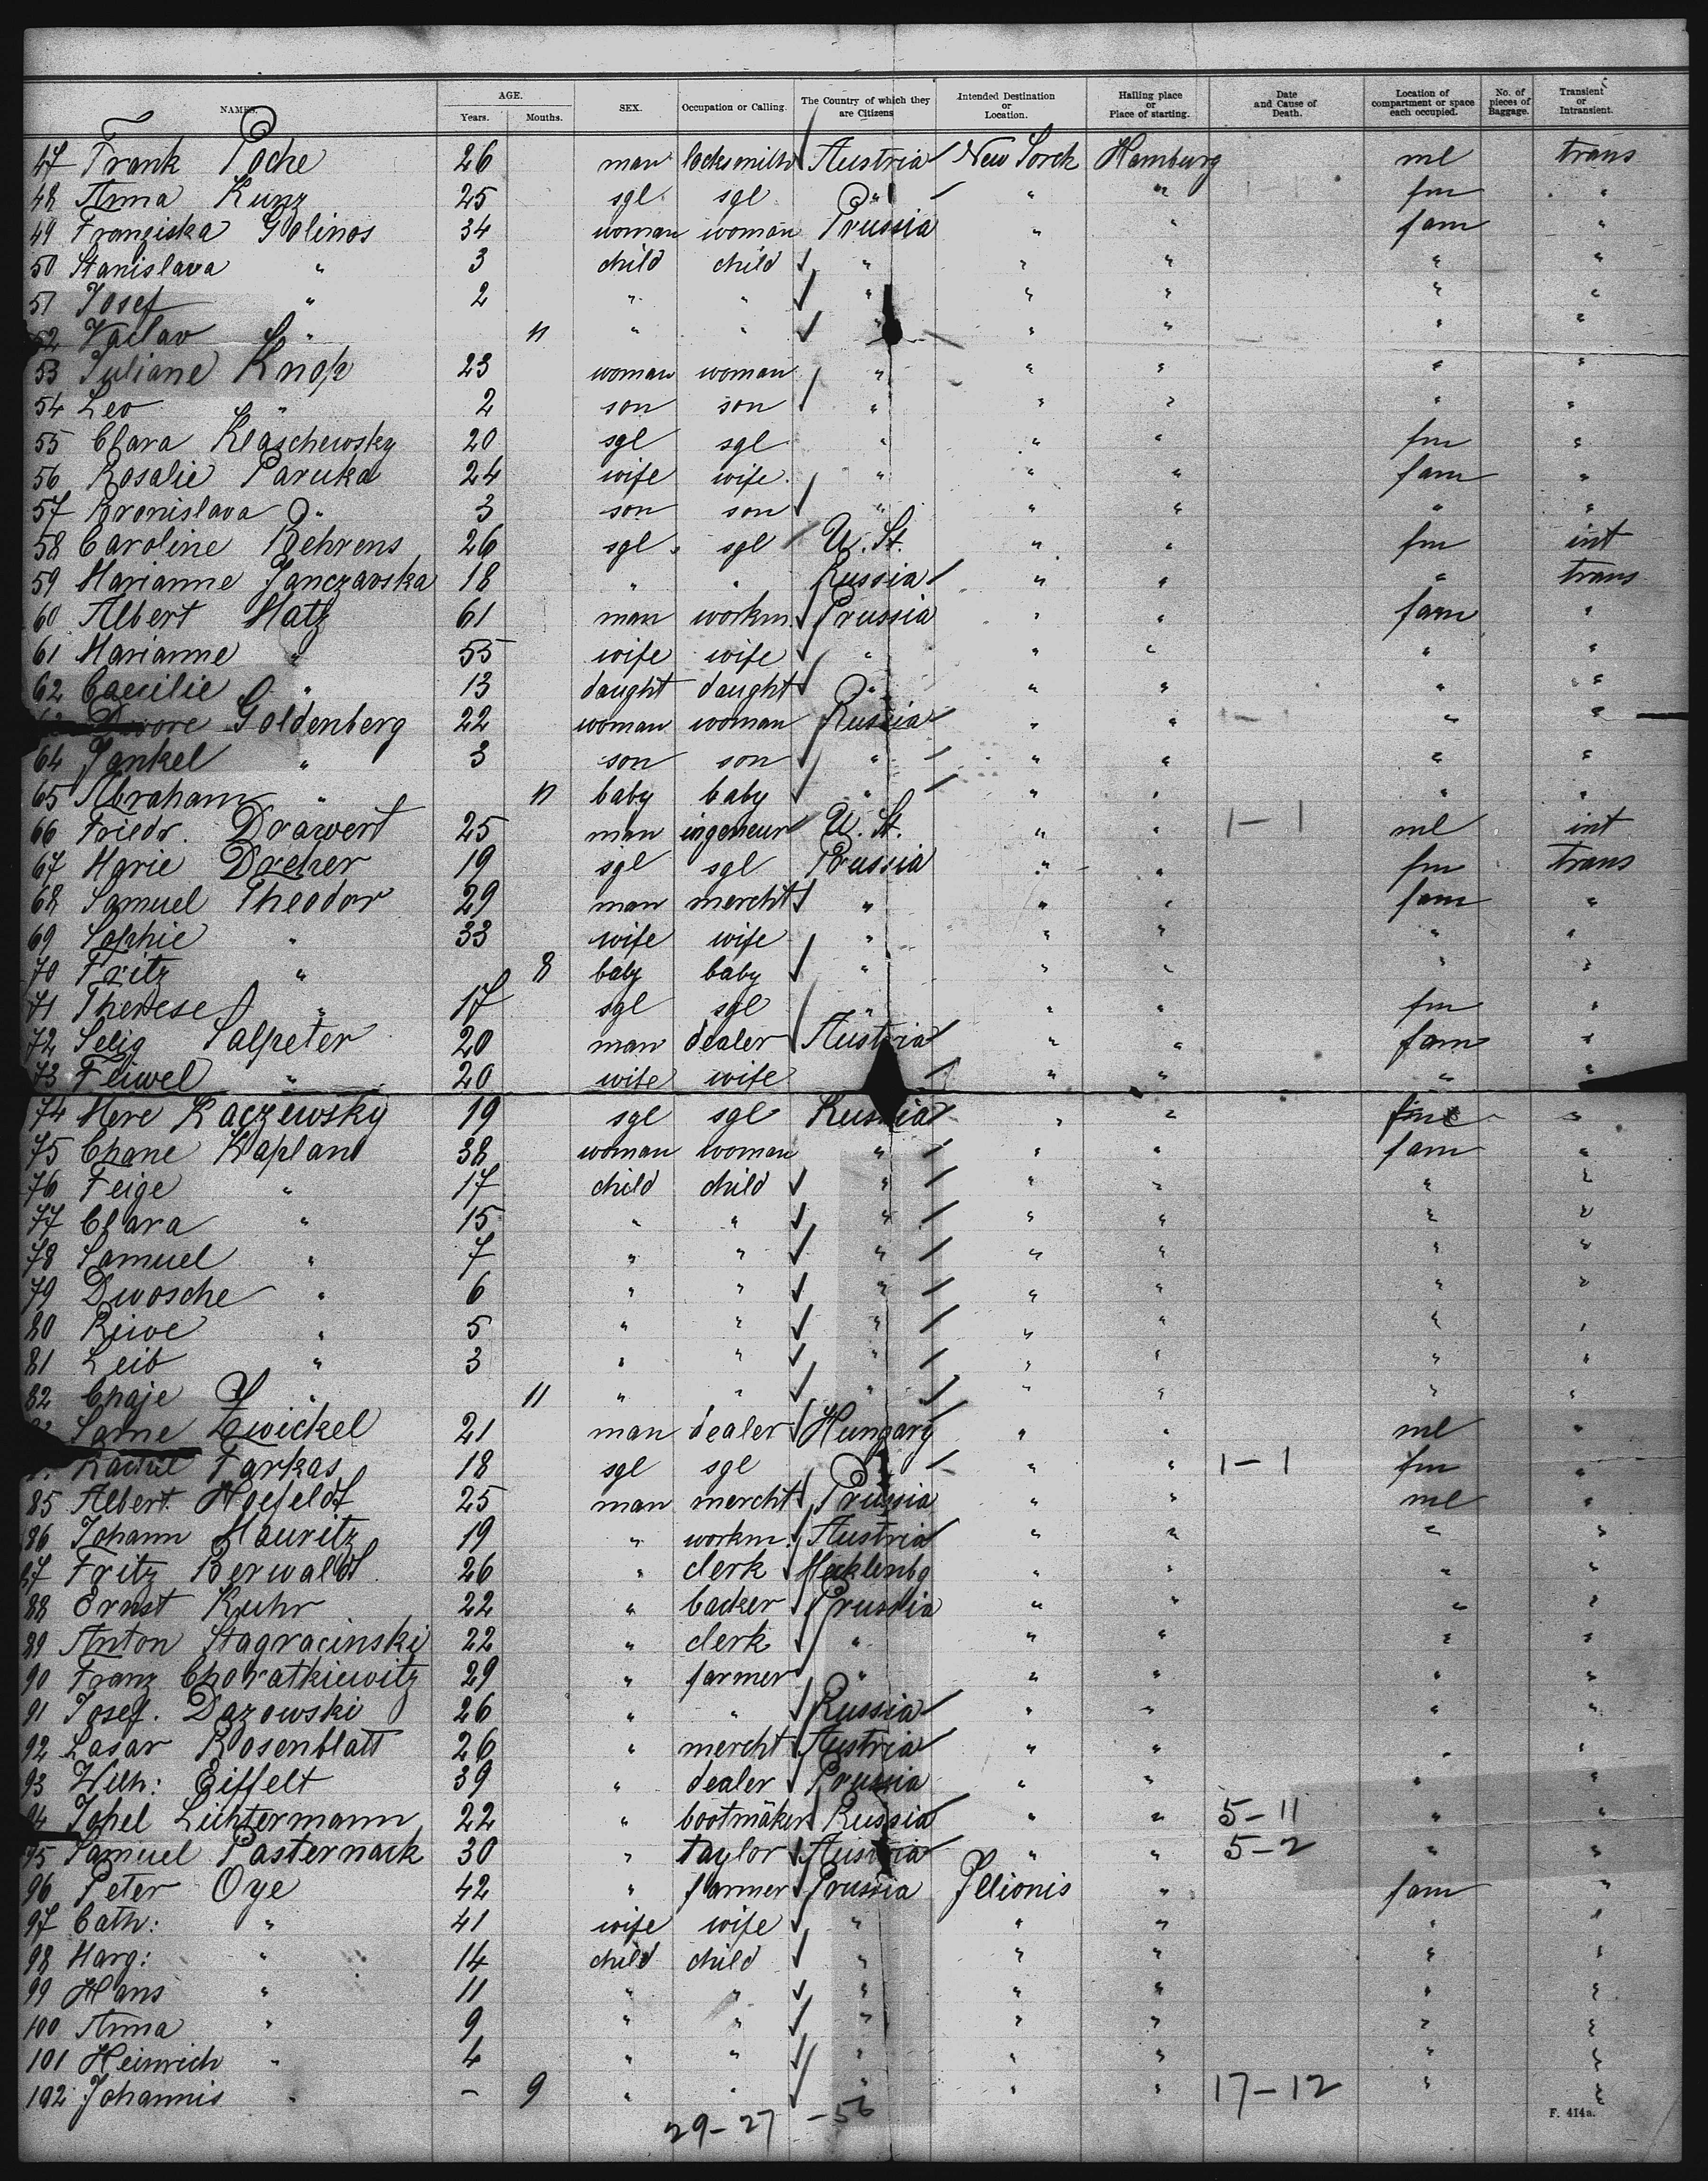 NAMES. AGE. Years. Months. SEX. Occupation or Calling. The Country of which they are Citizens Intended Destination or Location. Hailing place or Place of starting. Date and Cause of Death. Location of compartment or space each occupied. No. of pieces of Baggage. Transient or Intransient.
47 Frank Poche 26 man locksmith Austria New Yorck Hamburg ml trans
48 Anna Kunz 25 sgl sgl " " " fm "
49 Franziska Golinos 34 woman woman Prussia " " fam "
50 Stanislava " 3 child child " " " " "
51 Josef " 2 " " " " " " "
52 Vaclav " 11 " " " " " " "
53 Juliane Knop 23 woman woman " " " " "
54 Leo " 2 son son " " " " "
55 Clara Klaschewsky 20 sgl sgl " " " fm "
56 Rosalie Paruka 24 wife wife " " " fam "
57 Bronislava " 3 son son " " " " "
58 Caroline Behrens 26 sgl sgl U. St. " " fm int
59 Marianne Janczavska 18 " " Russia " " " trans
60 Albert Matz 61 man workm. Prussia " " fam "
61 Marianne " 55 wife wife " " " " "
62 Caecilie " 13 daught daught " " " " "
Dwore Goldenberg 22 woman woman Russia " " 1- " "
64 Jankel " 3 son son " " " " "
65 Abraham " 11 baby baby " " " " "
66 Friedr. Drawert 25 man ingenieur U. St. " " 1-1 ml int
67 Marie Dreher 19 sgl sgl Prussia " " fm trans
68 Samuel Theodor 29 man mercht " " " fam "
69 Sophie " 33 wife wife " " " " "
70 Fritz " 8 baby baby " " " " "
71 Therese " 17 sgl sgl " " " fm "
72 Selig Salpeter 20 man dealer Austria " " fam "
73 Feiwel " 20 wife wife " " " "
74 Mere Kaczewsky 19 sgl sgl Russia " " "
75 Chane Kaplan 38 woman woman " " " fam "
76 Feige " 17 child child " " " " "
77 Clara " 15 " " " " " " "
78 Samuel " 7 " " " " " " "
79 Dwosche " 6 " " " " " " "
80 Reiwe " 5 " " " " " " "
81 Leib " 3 " " " " " " "
82 Chaje " 11 " " " " " " "
Zwickel 21 man dealer Hungary " " ml "
Rachel Farkas 18 sgl sgl " " " 1-1 fm "
85 Albert Hoefeldt 25 man mercht Prussia " " ml "
86 Johann Mauritz 19 " workm. Austria " " " "
87 Fritz Berwaldt 26 " clerk Mecklenbg " " " "
88 Ernst Kuhr 22 " backer Prussia " " " "
89 Anton Stagracinski 22 " clerk " " " " "
90 Franz Choratkiewitz 29 " farmer " " " " "
91 Josef. Dazowski 26 " " Russia " " " "
92 Lasar Rosenblatt 26 " mercht Austria " " " "
93 Wilh: Eiffelt 39 " dealer Prussia " " " "
94 Johel Lichtermann 22 " bootmaker Russia " " 5-11 " "
95 Samuel Pasternack 30 " taylor Austria " " 5-2 " "
96 Peter Oye 42 " farmer Prussia Jllionis " fam "
97 Cath: " 41 wife wife " " " " "
98 Marg: " 14 child child " " " " "
99 Hans " 11 " " " " " " "
100 Anna " 9 " " " " " " "
101 Heinrich " 4 " " " " " " "
102 Johannis " - 9 " " " " " 17-12 " "
29-27 -56
F. 414a.